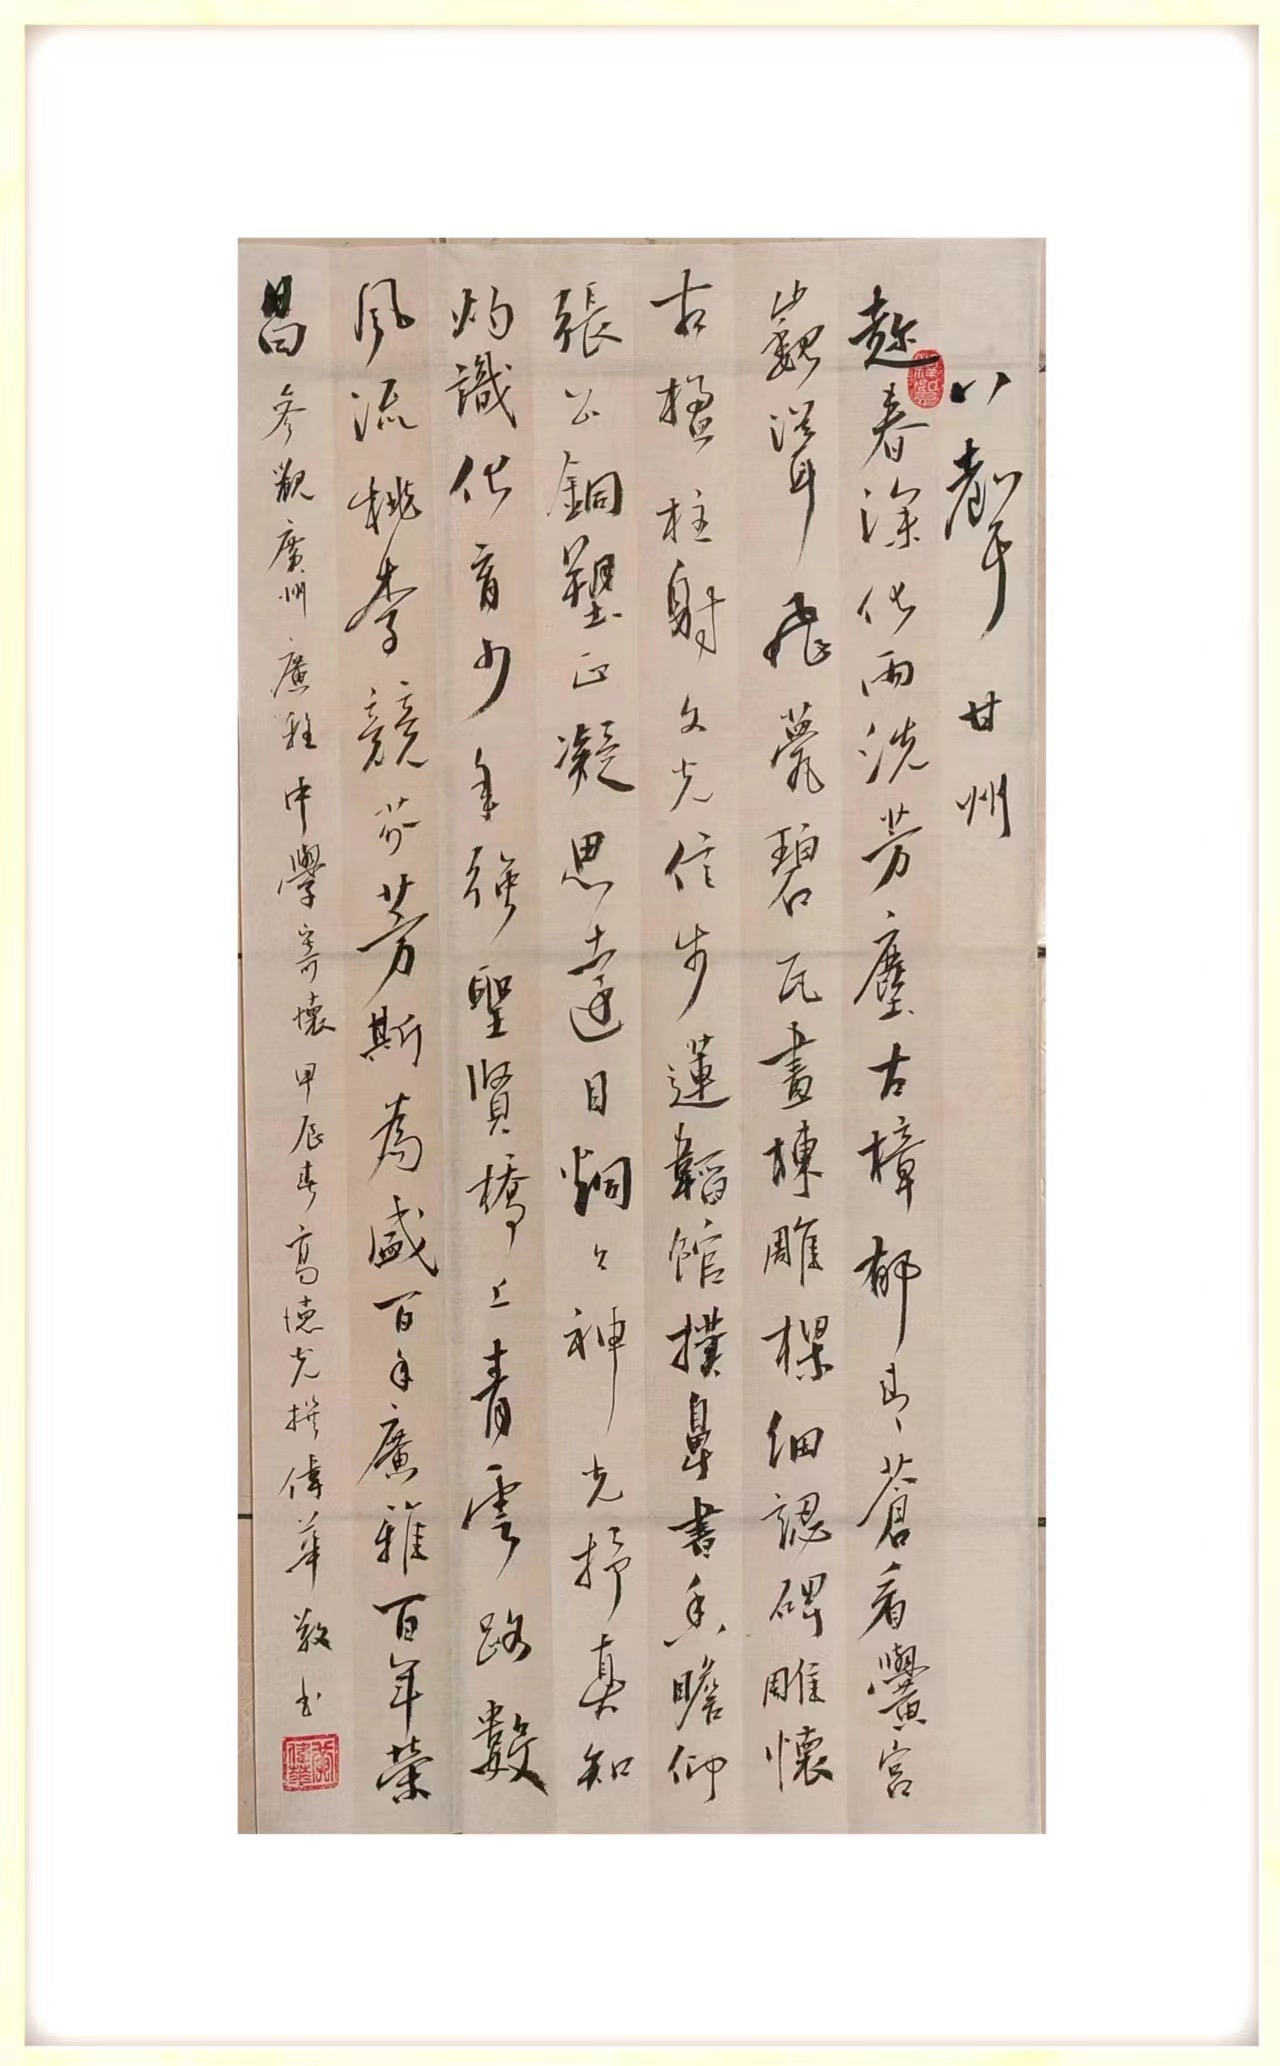 八聲甘州
趁春深化雨洗芳塵古樟郁青蒼看黌宮
巍聳飛甍碧瓦畫棟雕樑細認碑雕懷
古楹柱射文光信步蓮韜館撲鼻書香瞻仰
張公銅塑正凝思遠目炯炯神光抒真知
灼識化育少年強聖賢橋上青雲路數
風流桃李競芬芳斯為盛百年廣雅百年榮
昌
參觀廣州廣雅中學寄懷甲辰春高德光撰偉華敬書